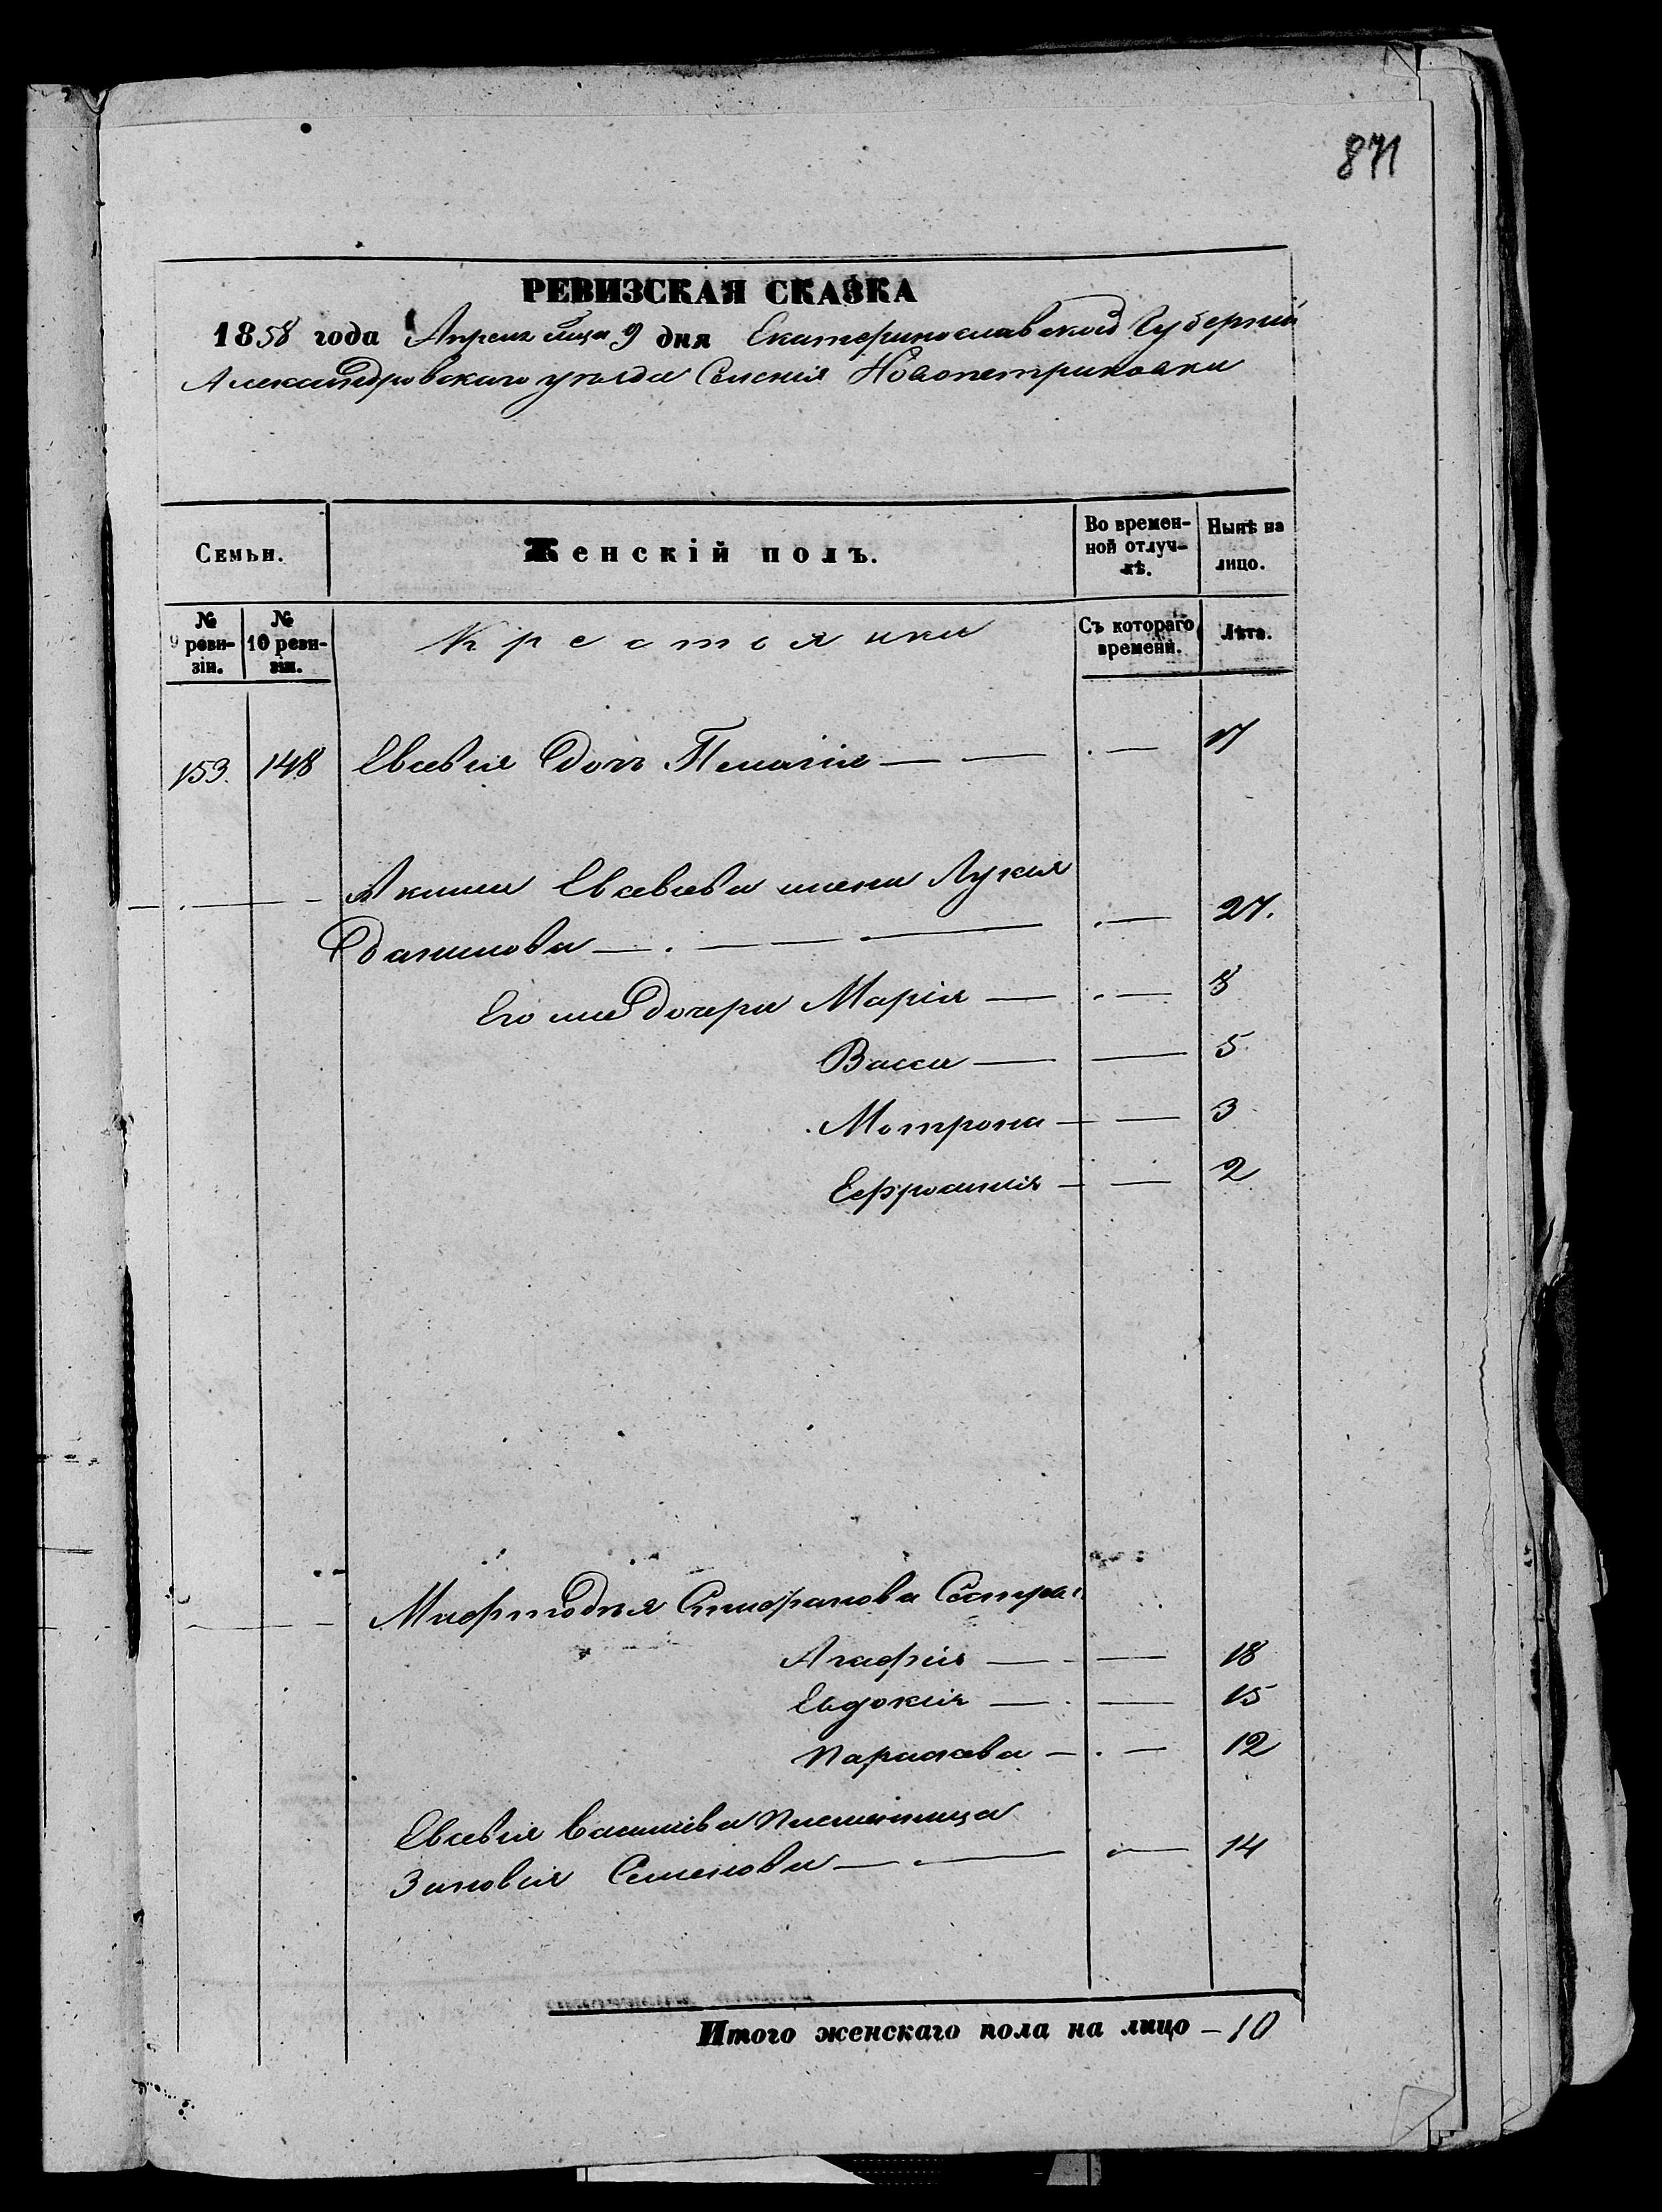 871
РЕВИЗСКАЯ СКАЗКА
1858 года Апреля мца 9 дня Екатеринославской Губерніи
Александровскаго уезда Селенія Новопетриковки
Семьи. Женскій полъ. Во временной отлучкѣ. Нынѣ на лицо.
№ 9 ревизіи. № 10 ревизіи. Крестьянки Съ котораго времени. Лѣта.
153. 148 Евсевія дочь Пелагія — — . — 17
Акима Евсевьева жена Лукія
Данилова — . — — — . — 27.
Его же дочери Марія — . — 8
Васса — — 5
Мотрона — — 3
Ефросинія — — 2
Мефтодія Епифанова Сестра
Агафія — — 18
Евдокія — — 15
Параскева — . — 12
Евсевія племянница
Зиновія Семенова — — — 14
Итого женскаго пола на лицо — 10